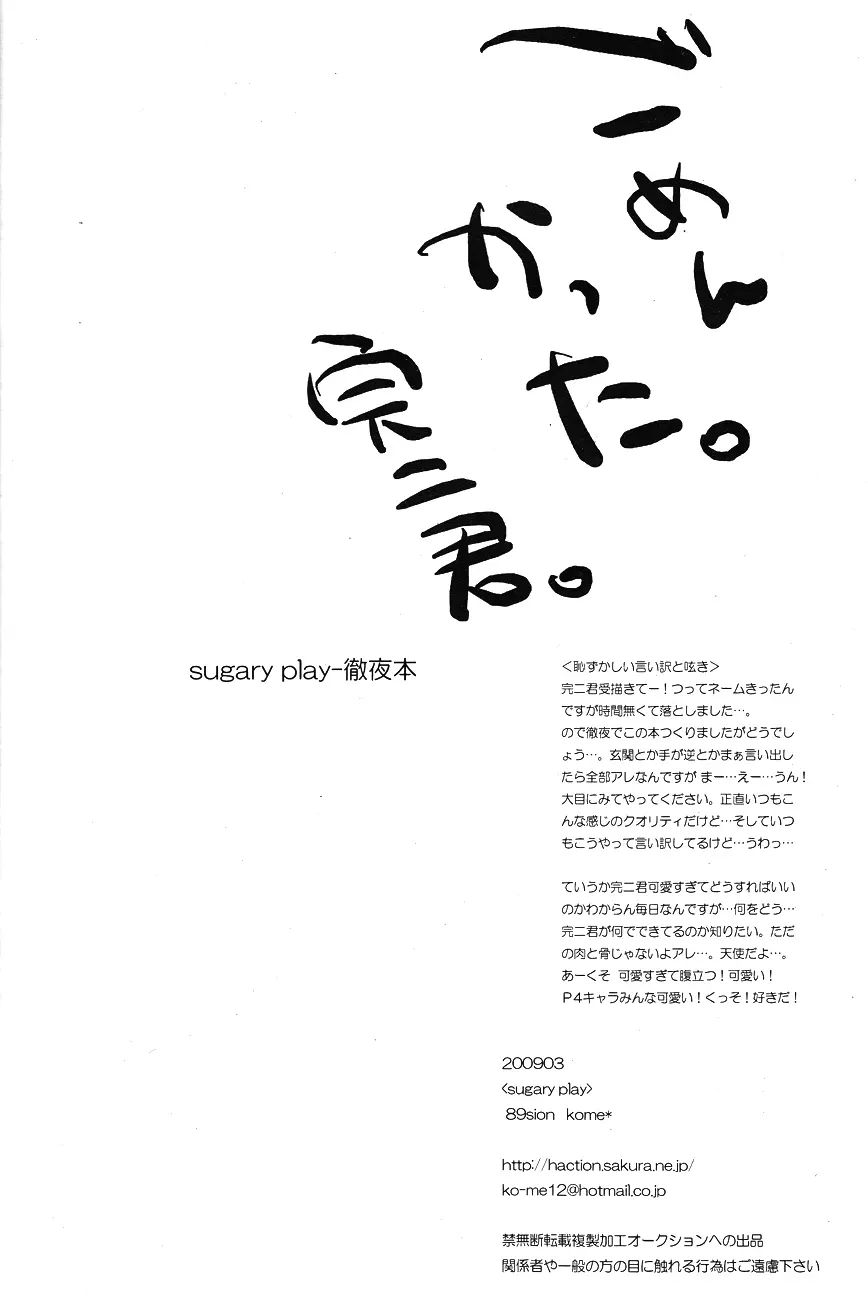 ごめん
かった。
完二君。
sugary play-徹夜本
＜恥ずかしい言い訳と呟き＞
完二君受描きてー！つってネームきったん
ですが時間無くて落としました…。
ので徹夜でこの本つくりましたがどうでし
ょう…。玄関とか手が逆とかまぁ言い出し
たら全部アレなんですが まー…えー…うん！
大目にみてやってください。正直いつもこ
んな感じのクオリティだけど…そしていつ
もこうやって言い訳してるけど…うわっ…
ていうか完二君可愛すぎてどうすればいい
のかわからん毎日なんですが…何をどう…
完二君が何でできてるのか知りたい。ただ
の肉と骨じゃないよアレ…。天使だよ…。
あーくそ 可愛すぎて腹立つ！可愛い！
P4キャラみんな可愛い！くっそ！好きだ！
200903
<sugary play>
89sion kome*
http://haction.sakura.ne.jp/
ko-me12@hotmail.co.jp
禁無断転載複製加工オークションへの出品
関係者や一般の方の目に触れる行為はご遠慮下さい